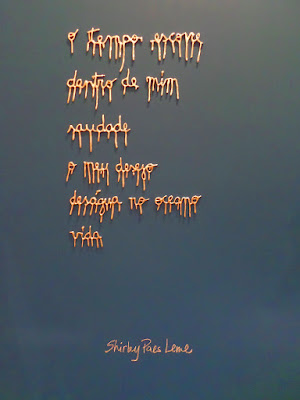 o tempo escorre
dentro de mim
saudade
o meu desejo
deságua no oceano
vida
Shirley Paes Leme